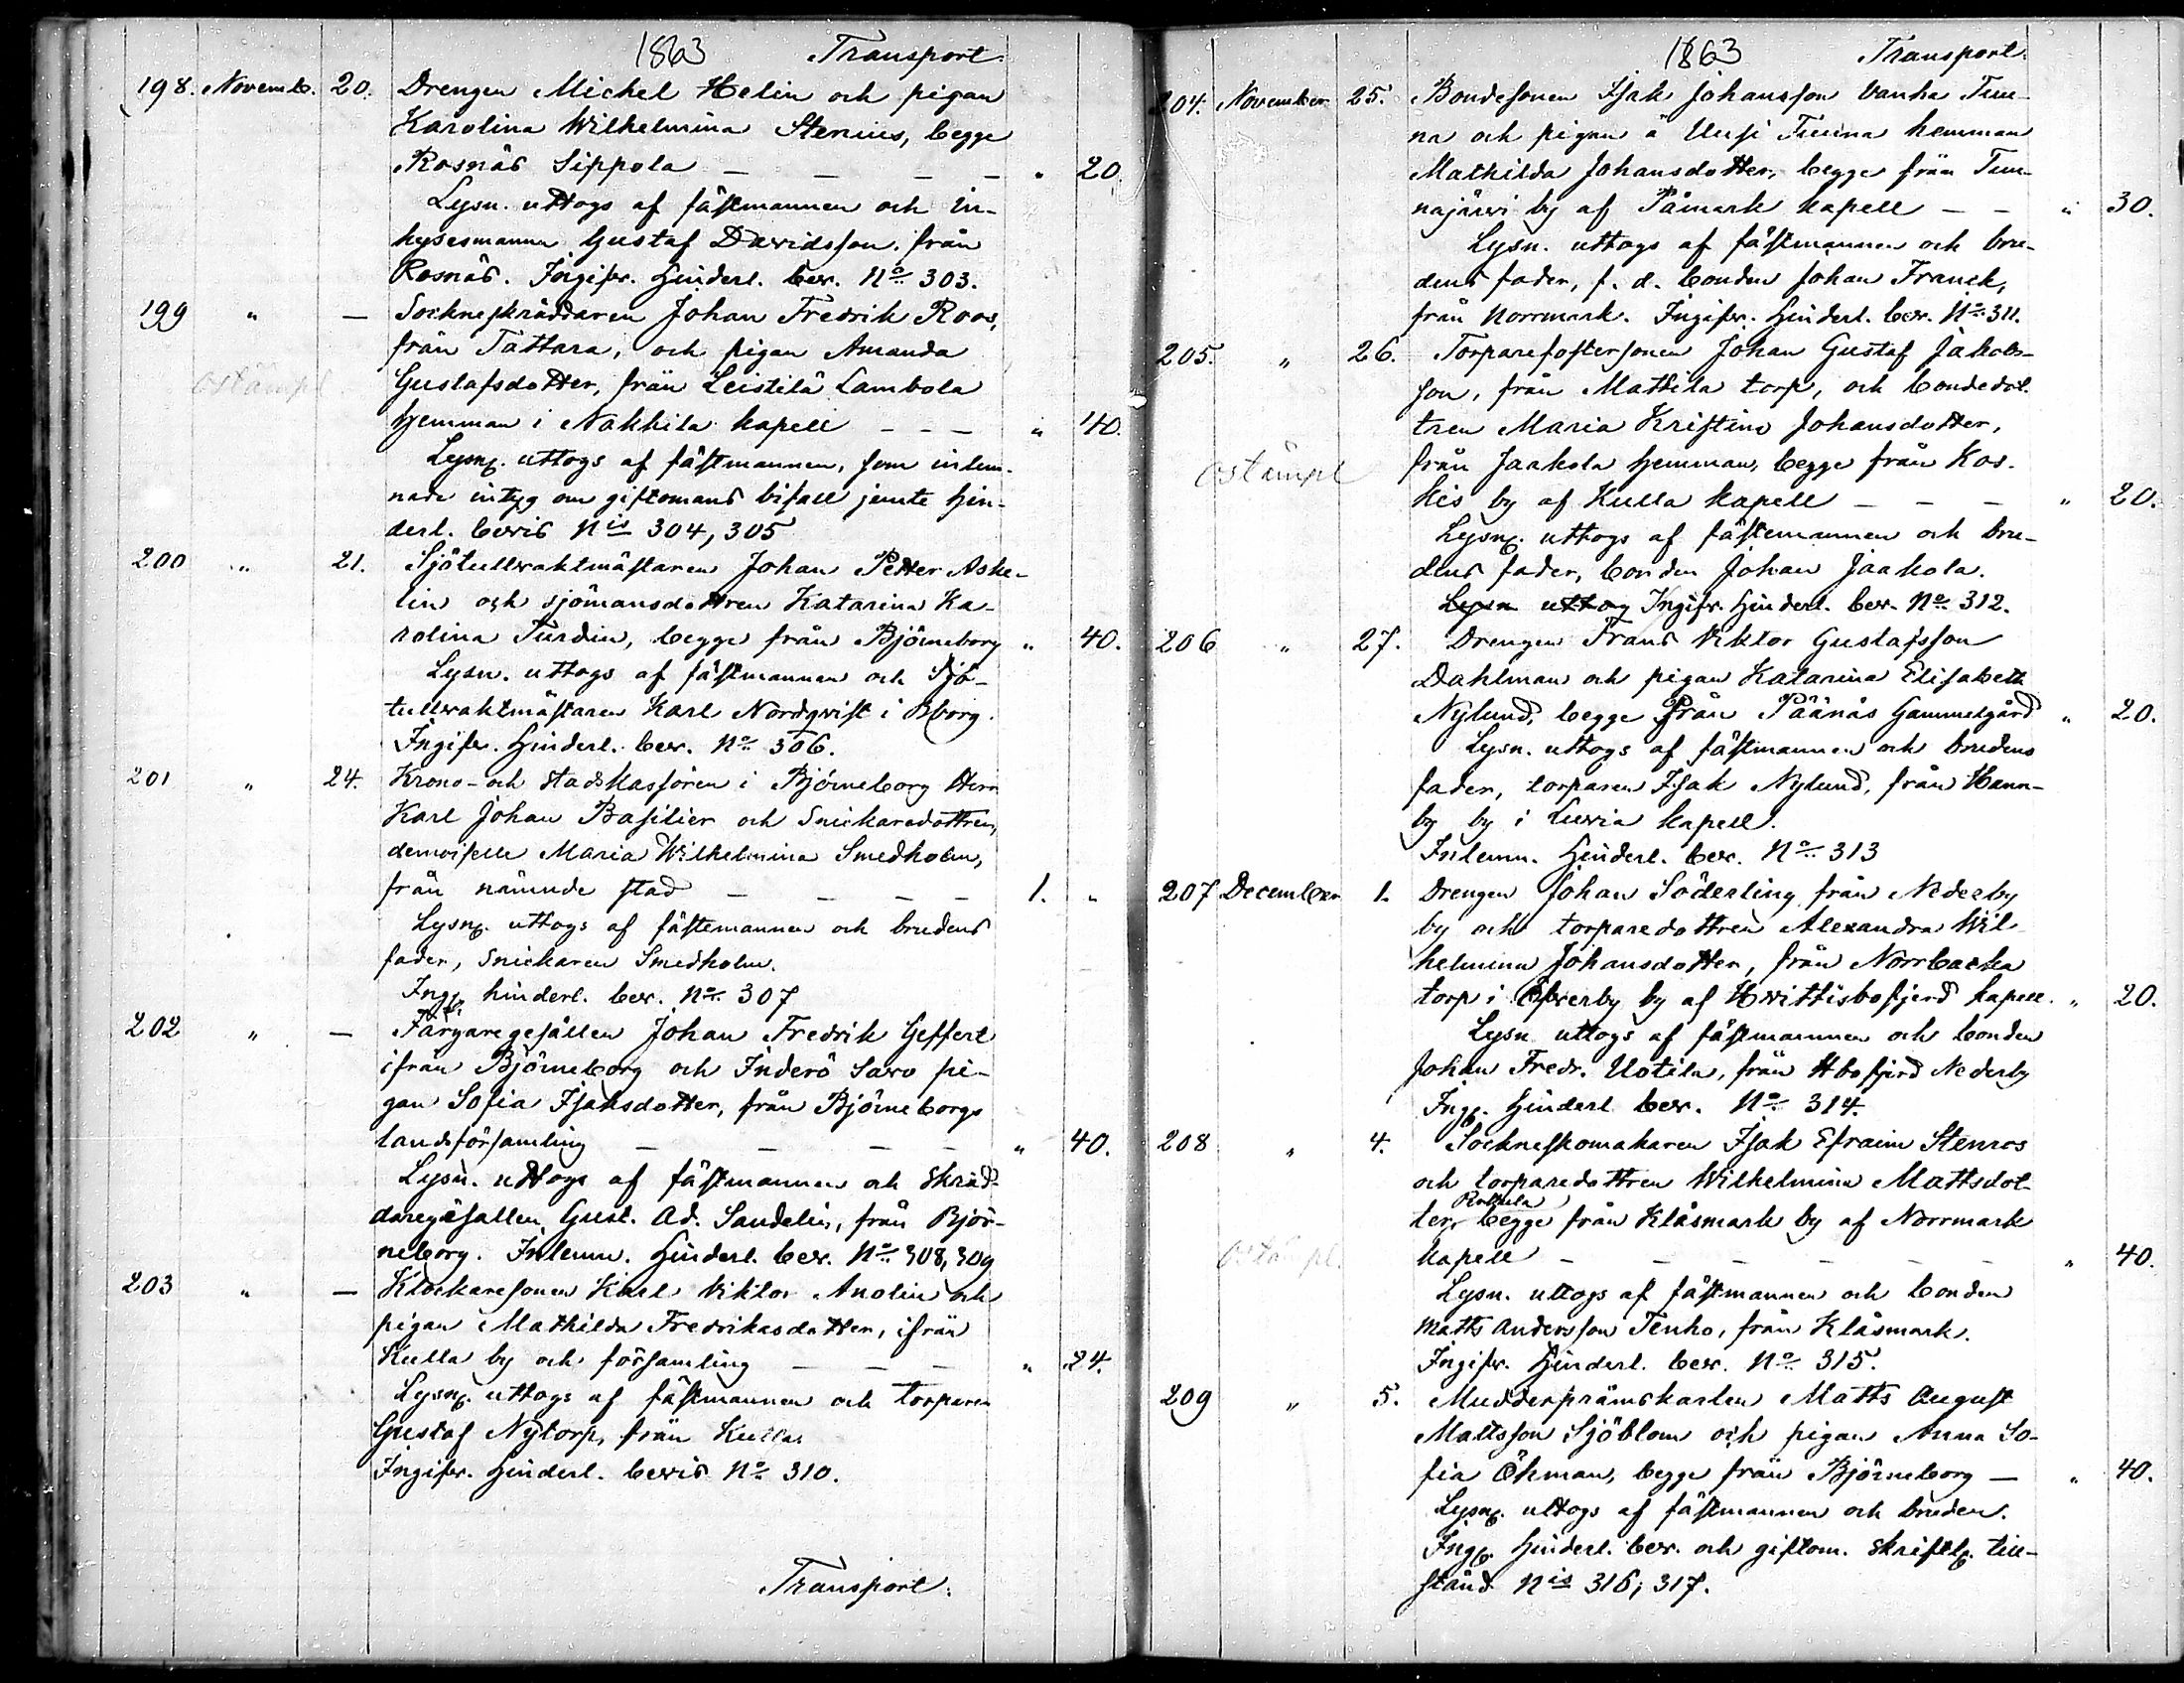 1863 Transport
198. Novemb. 20. Drengen Michel Helin och pigan
Karolina Wilhelmina Stenius, begge
Rosnäs Sippola — — — — " 20.
Lysn. uttogs af fästmannen och in-
hysesmannen Gustaf Davidsson, från
Rosnäs. Ingifv. Hinderl. bev. No 303.
199 " — Sockneskräddaren Johan Fredrik Roos,
från Tattara, och pigan Amanda
ostämpl Gustafsdotter, från Leistilä Lambola
hemman i Nakkila kapell — — — " 40.
Lysng. uttogs af fästmannen, som inlem-
nade intyg om giftomans bifall jemte hin-
derl. bevis Nis 304, 305
200 " 21. Sjötullvaktmästaren Johan Petter Aske-
lin och sjömansdottren Katarina Ka-
rolina Turdin, begge från Björneborg " 40.
Lysn. uttogs af fästmannen och Sjö-
tullvaktmästaren Karl Nordqvist i Bborg.
Ingifv. Hinderl. bev. No 306.
201 " 24. Krono- och stadskassören i Björneborg Herr
Karl Johan Basilier och Snickaredottren,
demoiselle Maria Wilhelmina Smedholm,
från nämnde stad — — — — 1. "
Lysng. uttogs af fästemannen och brudens
fader, Snickaren Smedholm.
Ingf. hinderl. bev. No 307
202 " — Färgaregesällen Johan Fredrik Geffert
ifrån Björneborg och Inderö Savo pi-
gan Sofia Isaksdotter, från Björneborgs
landsförsamling — — — — " 40.
Lysn. uttogs af fästmannen och skräd-
daregesällen Gust. Ad. Sandelin, från Björ-
neborg. Inlemn. Hinderl. bev. No 308, 309
203 " — Klockaresonen Karl Viktor Anolin och
pigan Mathilda Fredrikasdotter, ifrån
Kulla by och församling — — — " 24.
Lysng. uttogs af fästmannen och torparen
Gustaf Nytorp, från Kulla
Ingifv. Hinderl. bevis No 310.
Transport.
1863 Transport
204. November 25. Bondesonen Isak Johansson Vanha Tuu-
na och pigan å Uusi Tuuna hemman
Mathilda Johansdotter, begge från Tuu-
najärvi by af Påmark kapell — — " 30.
Lysn. uttogs af fästmannen och bru-
dens fader, f. d. bonden Johan Franck,
från Norrmark. Ingifv. Hinderl. bev. No 311.
205. " 26. Torparefostersonen Johan Gustaf Jakobs-
son, från Mattila torp, och bondedot-
tren Maria Kristina Johansdotter,
ostämpl från Jaakola hemman, begge från Kos-
kis by af Kulla kapell — — — " 20.
Lysng. uttogs af fästemannen och bru-
dens fader, bonden Johan Jaakola.
Lysn uttog Ingifv. Hinderl. bev. No 312.
206 " 27. Drengen Frans Viktor Gustafsson
Dahlman och pigan Katarina Elisabeth
Nylund, begge från Påänäs Gammelgård " 20.
Lysn. uttogs af fästmannen och brudens
fader, torparen Isak Nylund, från Hann-
by by i Luvia kapell.
Inlemn. Hinderl. bev. No 313
207 December 1. Drengen Johan Söderling från Nederby
by och torparedottren Alexandra Wil-
helmina Johansdotter, från Norrbacka
torp i Öfverby by af Hvittisbofjerd kapell. " 20.
Lysn uttogs af fästmannen och bonden
Johan Fredr. Uotila, från Hbofjerd Nederby
Ingf. Hinderl bev. No 314.
208 " 4. Sockneskomakaren Isak Efraim Stenros
och torparedottren Wilhelmina Mattsdot-
ter, begge från Klåsmark by af Norrmark
ostämpl. kapell — — — — — — " 40.
Lysn. uttogs af fästmannen och bonden
Matts Andersson Tenho, från Klåsmark.
Ingifv. Hinderl. bev. No 315.
209 " 5. Mudderpråmskarlen Matts August
Mattsson Sjöblom och pigan Anna So-
fia Öhman, begge från Björneborg — " 40.
Lysng. uttogs af fästmannen och bruden.
Ingf. Hinderl. bev. och giftom. skriftlg. till-
stånd Nis 316, 317.